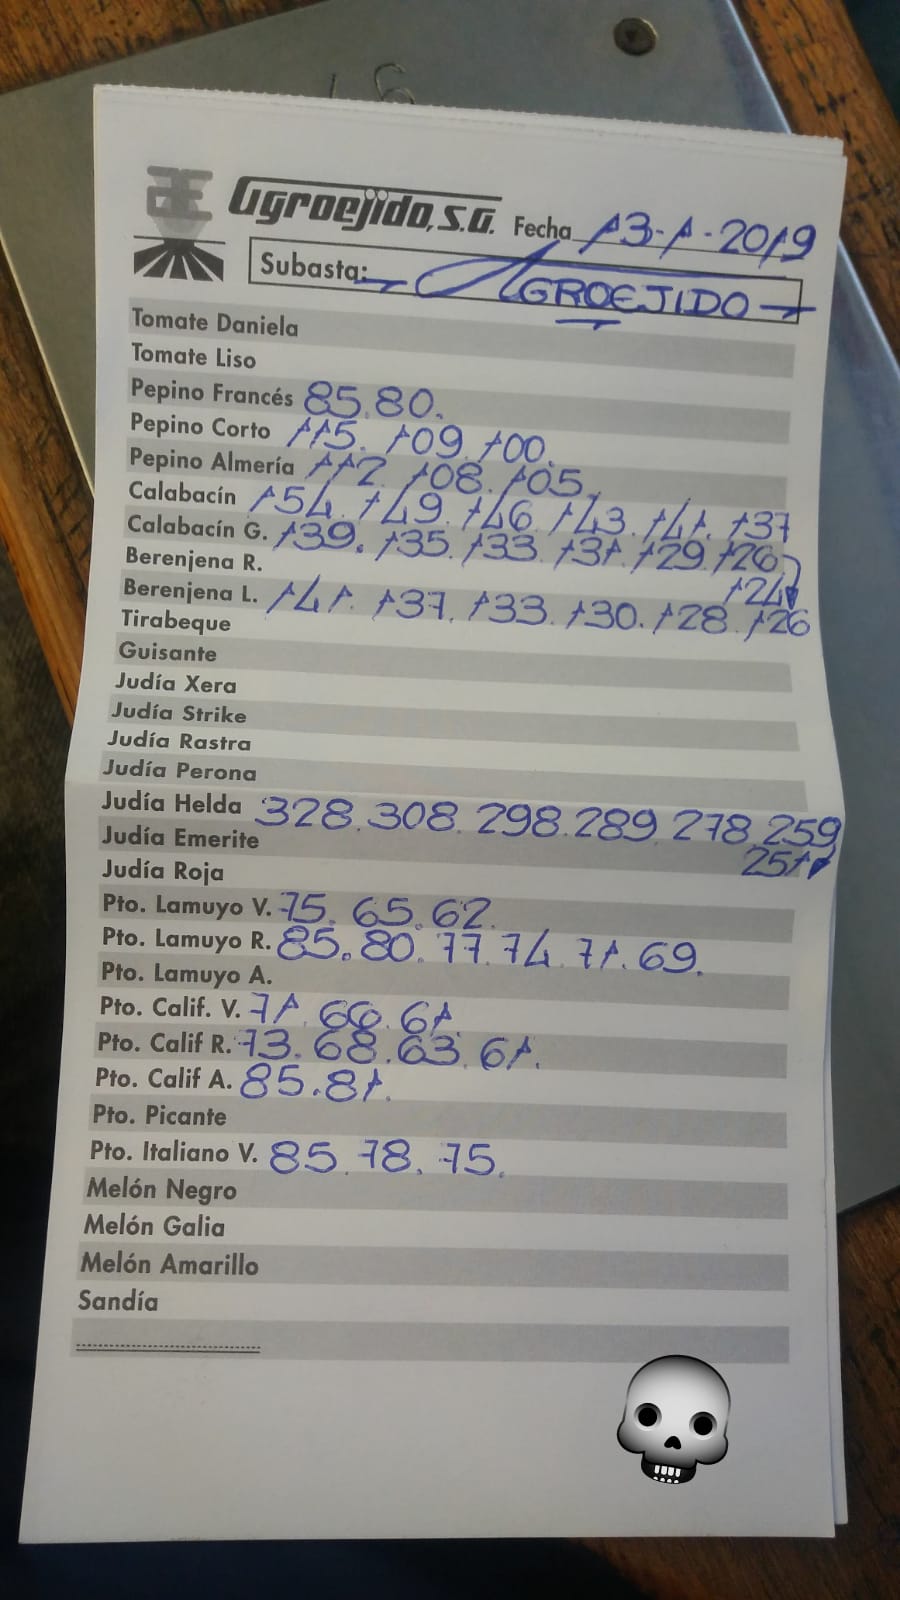 16
AE Agroejido, S.A. Fecha 13-1-2019
Subasta: AGROEJIDO
Tomate Daniela
Tomate Liso
Pepino Francés 85.80.
Pepino Corto 115. 109. 100.
Pepino Almería 112. 108. 105.
Calabacín 154. 149. 146. 143. 141. 137
Calabacín G. 139. 135. 133. 131. 129. 126
124
Berenjena R.
Berenjena L. 141. 137. 133. 130. 128. 126
Tirabeque
Guisante
Judía Xera
Judía Strike
Judía Rastra
Judía Perona
Judía Helda 328.308.298.289.278.259
251
Judía Emerite
Judía Roja
Pto. Lamuyo V. 75. 65. 62.
Pto. Lamuyo R. 85. 80. 77. 74. 71. 69.
Pto. Lamuyo A.
Pto. Calif. V. 71. 66. 61.
Pto. Calif R. 73. 68. 63. 61.
Pto. Calif A. 85.81.
Pto. Picante
Pto. Italiano V. 85. 78. 75.
Melón Negro
Melón Galia
Melón Amarillo
Sandía